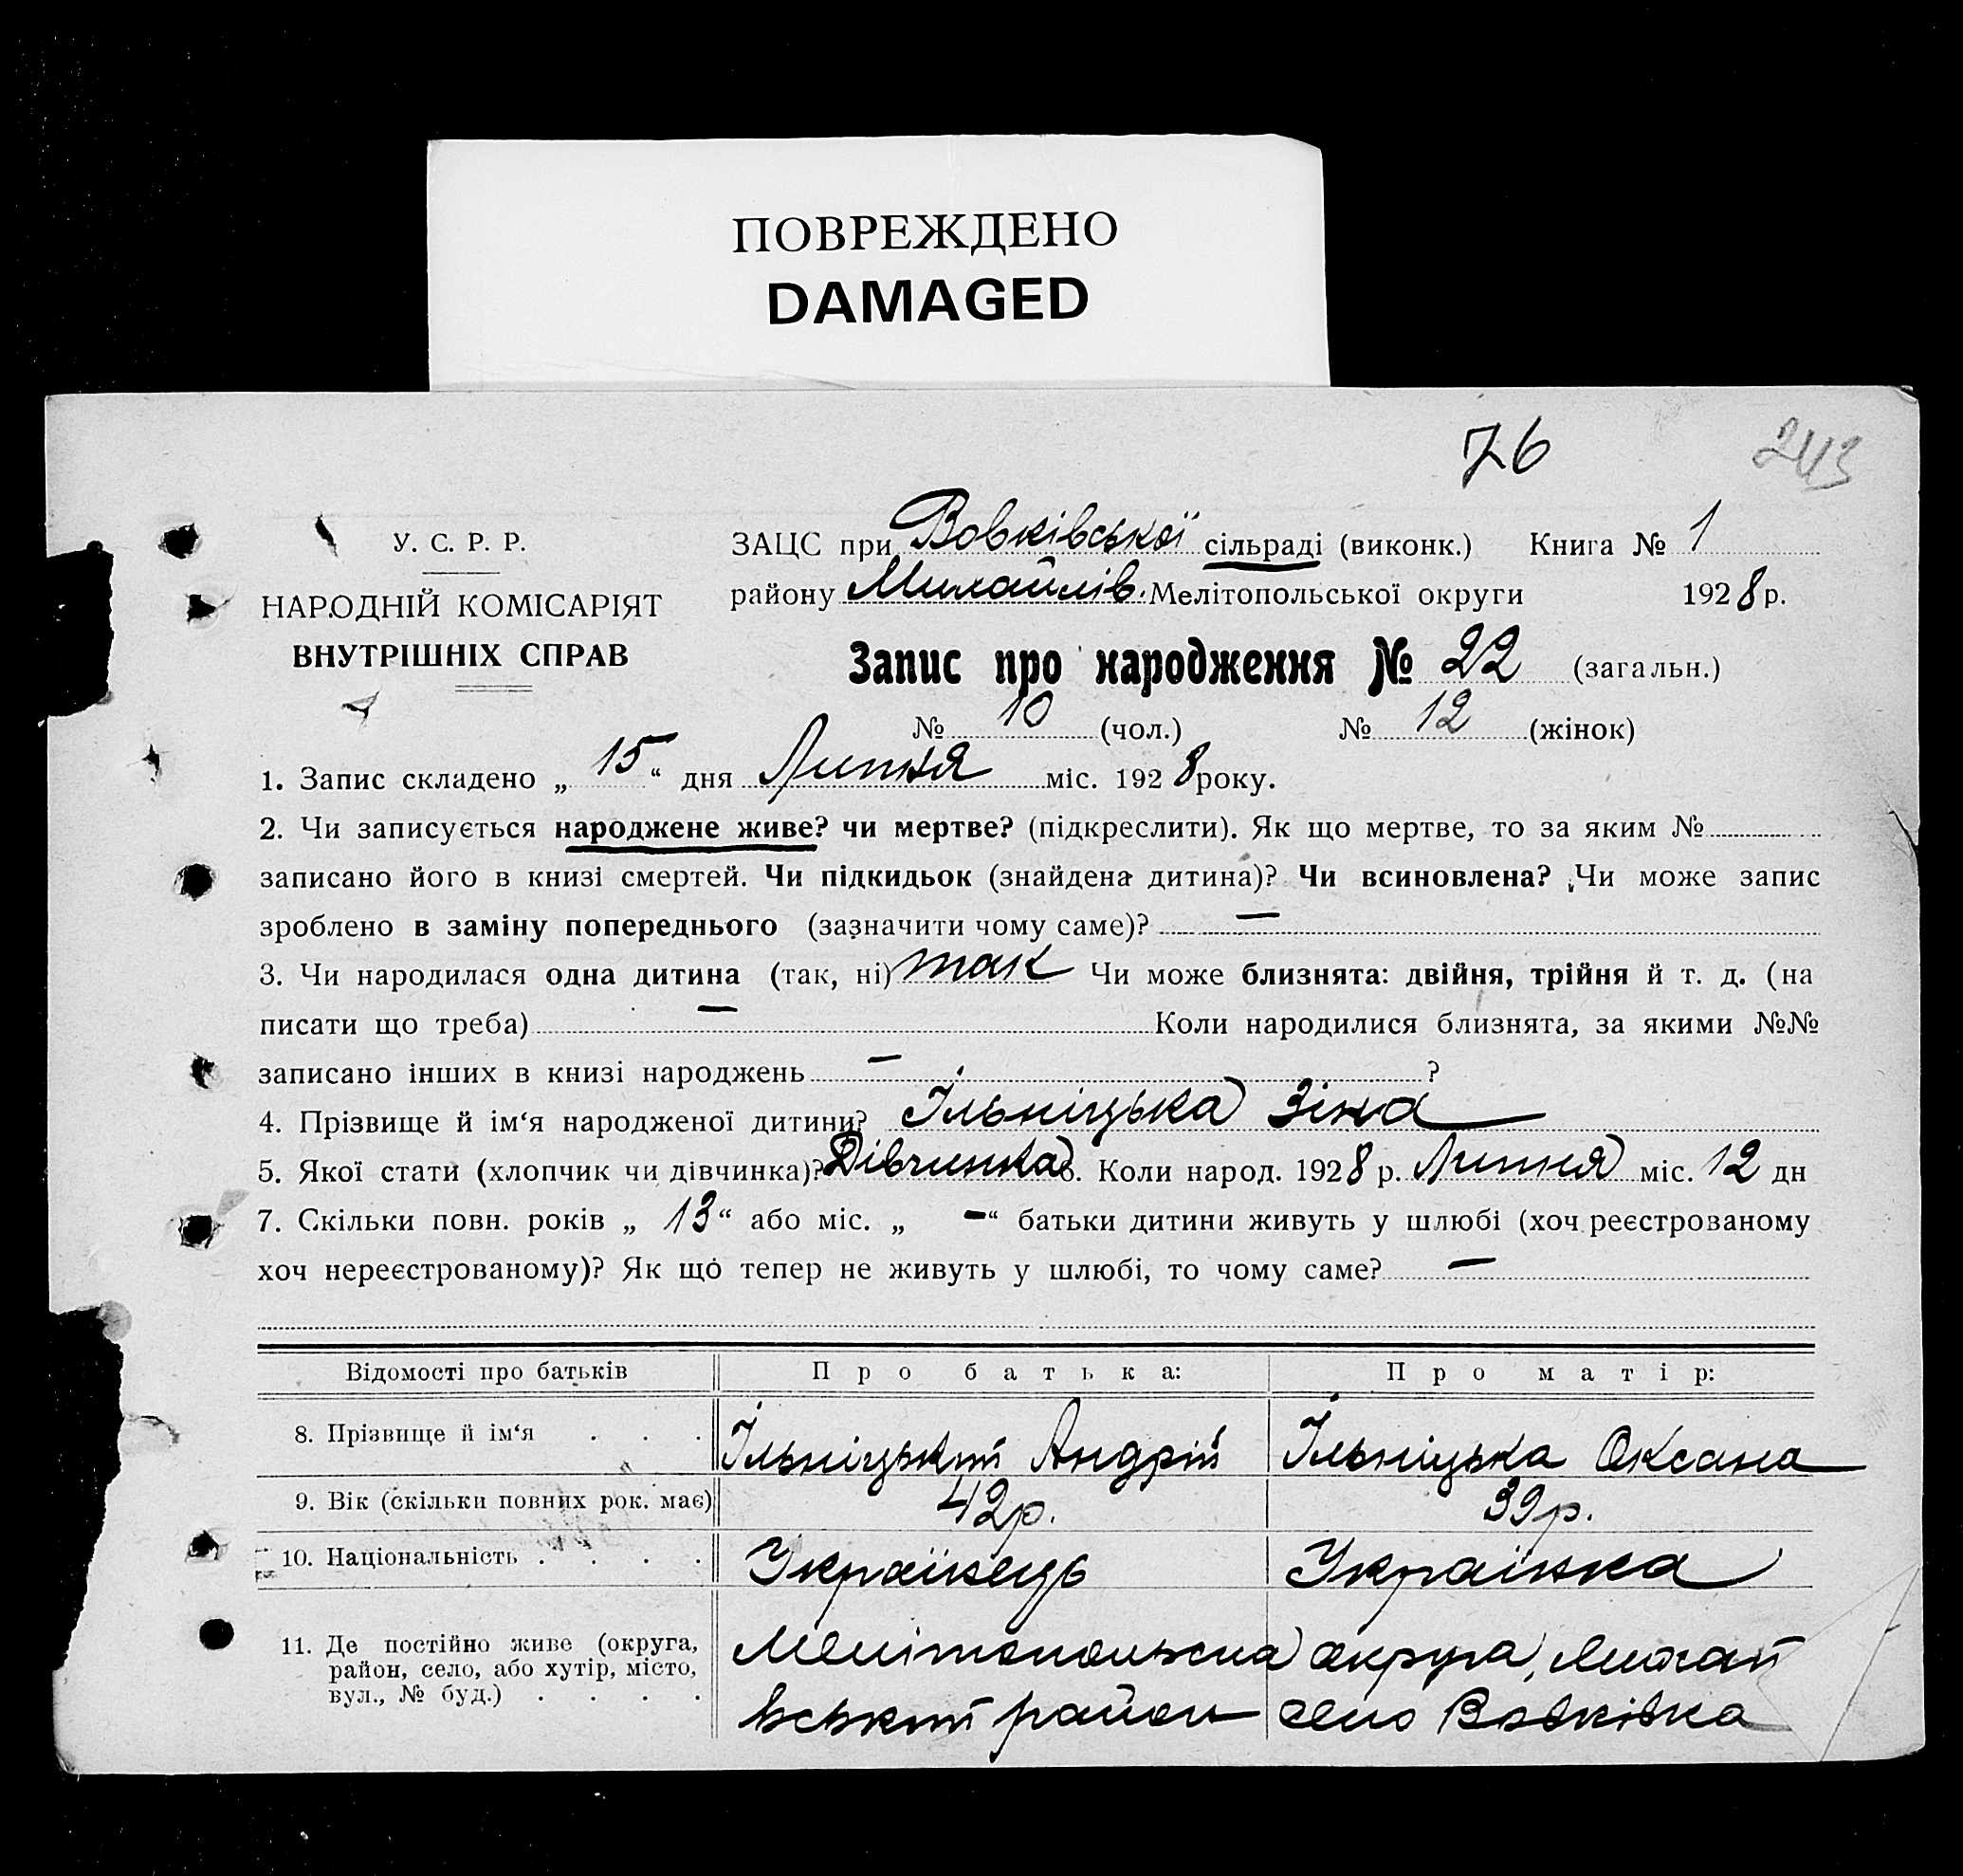 ПОВРЕЖДЕНО
DAMAGED
76
243
У. С. Р. Р.
НАРОДНІЙ КОМІСАРІЯТ
ВНУТРІШНІХ СПРАВ
ЗАЦС при Вовківської сільраді (виконк.) Книга № 1
району Михайлів. Мелітопольської округи 1928 р.
Запис про народження № 22 (загальн.)
№ 10 (чол.) № 12 (жінок)
1. Запис складено „ 15 “ дня Липня міс. 1928 року.
2. Чи записується народжене живе? чи мертве? (підкреслити). Як що мертве, то за яким №
записано його в книзі смертей. Чи підкидьок (знайдена дитина)? Чи всиновлена? Чи може запис
зроблено в заміну попереднього (зазначити чому саме)? —
3. Чи народилася одна дитина (так, ні) так Чи може близнята: двійня, трійня й т. д. (на
писати що треба) — Коли народилися близнята, за якими №№
записано інших в книзі народжень — ?
4. Прізвище й ім‘я народженої дитини? Ільніцька Зіна
5. Якої стати (хлопчик чи дівчинка)? Дівчинка 6. Коли народ. 1928 р. Липня міс. 12 дн
7. Скільки повн. років „ 13 “ або міс. „ — “ батьки дитини живуть у шлюбі (хоч реєстрованому
хоч нереєстрованому)? Як що тепер не живуть у шлюбі, то чому саме? —
Відомості про батьків Про батька: Про матір:
8. Прізвище й ім‘я . . . Ільніцький Андрій Ільніцька Оксана
9. Вік (скільки повних рок. має) 42 р. 39 р.
10. Національність . . . . Українець Українка
11. Де постійно живе (округа, район, село, або хутір, місто, вул., № буд.) . . . . Мелітопольська округа, Михай
вський район село Вовківка